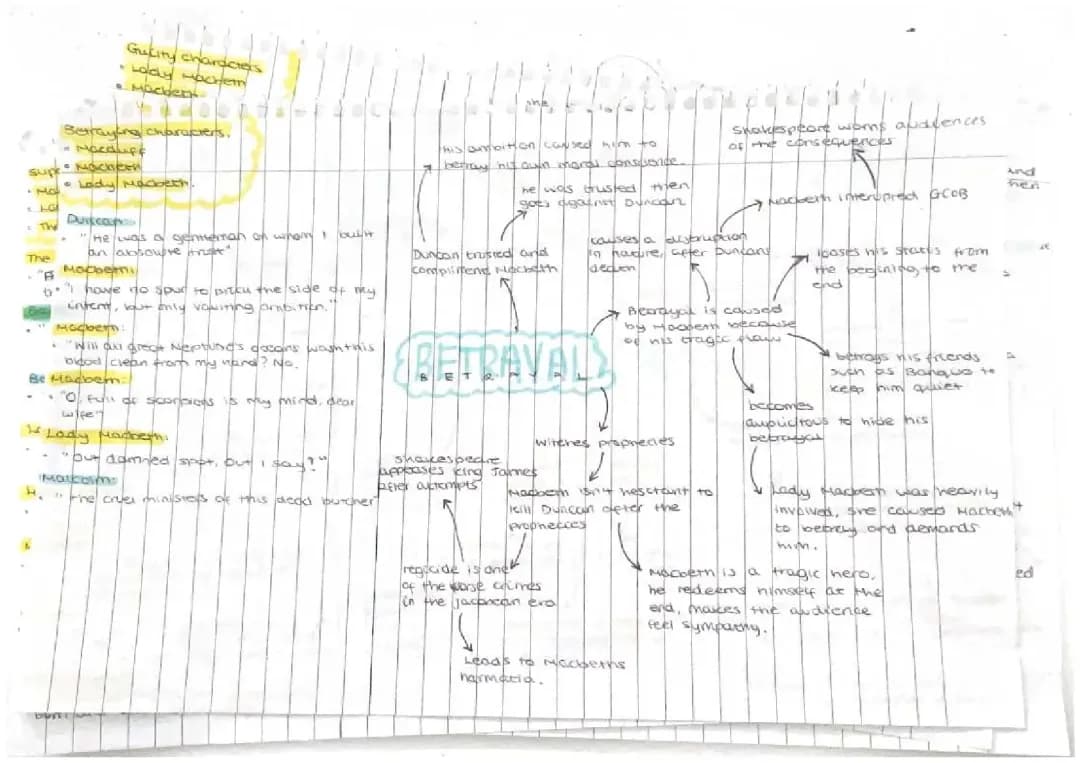 Guilty characters
• Lady Macbeth
• Macbeth
Betraying characters.
• Macduff
• Macbeth
• Lady Macbeth.
Duncan
• "He was a gentleman on whom I built
an absolute trust"
Macbeth:
"I have no spur to prick the side of my
intent, but only vaulting ambition."
Macbeth:
• "Will all great Neptune's oceans wash this
blood clean from my hand? No.
Macbeth:
• "O, full of scorpions is my mind, dear
wife"
Lady Macbeth:
• "Out damned spot, out I say?"
Malcolm:
"The cruel ministers of this dead butcher"
his ambition caused him to
betray his own moral
he was trusted then
goes against Duncan
Duncan trusted and
Macbeth
BETRAYAL
BETRAYAL
Shakespeare warns audiences
of the consequences
Macbeth GCOB
causes a disruption
in nature, after Duncans
looses his status from
the begining, to the
end
Betrayal is caused
by Macbeth because
of his tragic flaw
betrays his friends
such as Banquo to
keep him quiet
becomes
to hide his
betrayal
Lady Macbeth was heavily
involved, she caused Macbeth
to betray and demands
him.
witches prophecies
Macbeth isn't to
kill Duncan after the
prophecies
Shakespeare
appeases King James
after attempts
regicide is one
of the worse crimes
in the jacobean era
Leads to Macbeths
harmatia.
Macbeth is a tragic hero,
he redeems himself at the
end, makes the audience
feel sympathy.